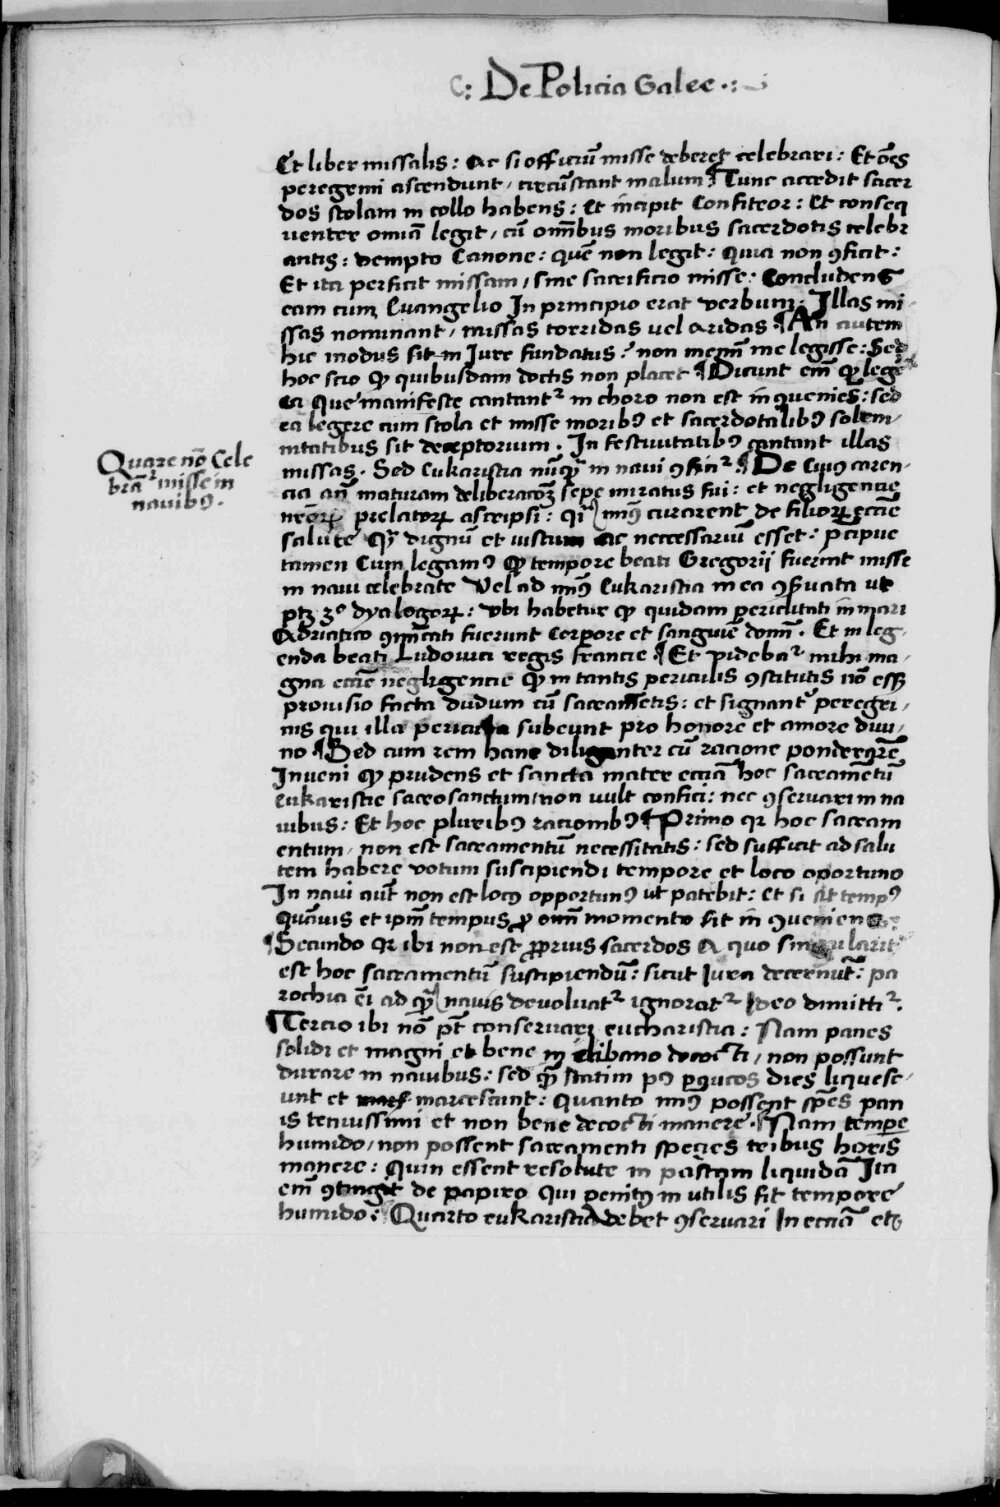 C: De Policia Galee .:
Et liber missalis : ac si officiũ misse deberet celebrari : Et oẽs
peregrini ascendunt / circũstant malum ¶ Tunc accedit sacer
dos stolam in collo habens : et incipit Confiteor : Et conseq
uenter omiã legit / cũ om̃ibus moribus sacerdotis celebr
antis : dempto Canone : quẽ non legit : quia non ꝯficit :
Et ita perficit missam / sine sacrificio misse : Concludens
eam cum Euangelio In principio erat verbum : Illas mi
ssas nominant / missas torridas uel aridas ¶ An autem
hic modus sit in Jure fundatus ? non mem̃i me legisse : Sed
hoc scio ꝙ quibusdam doctis non placet ¶ Dicunt em̃ ꝙ legẽ
ea que manifeste cantantᷣ in choro non est inꝯueniẽs : sed
ea legere cum stola et misse moribꝰ et sacerdotalibꝰ solem /
nitatibus sit deceptorium . In festiuitatibꝰ cantant illas
missas . Sed Eukaristia nũqᷓ in naui ꝯficitᷣ . ¶ De Cuiꝰ caren /
cia añ maturam deliberacoꝫ sepe miratus fui : et negligencie
nr̃orꝝ prelatorꝝ ascripsi : qͥ miꝰ curarent de filiorꝝ eccĩe
salute qᷓ dignũ et iustum ac necessariũ esset : p̃cipue
tamen Cum legamꝰ ꝙ tempore beati Gregorii fuerint misse
in naui celebrate Vel ad miꝰ Eukaristia in ea ꝯẜuata ut
ptꝫ 3º dyalogorꝝ : vbi habetur ꝙ quidam periclitati in mari
Adriatico ꝯm̃icati fuerunt corpore et sanguiẽ domĩ . Et in leg /
enda beati Ludouici regis francie ¶ Et videbaᷣ mihi ma /
gna eccĩe negligencie ꝙ in tantis periculis ꝯstitutis nõ esſꝫ
prouisio facta dudum cũ sacramẽtis : et signantꝰ peregri /
nis qui illa pericula subeunt pro honore et amore diui /
no ¶ Sed cum rem hanc diligenter cũ racione ponderarẽ
Inueni ꝙ prudens et sancta mater eccĩa hoc sacramẽtũ
Eukaristie sacrosanctum / non uult confici : nec ꝯseruari in na
uibus : Et hoc pluribꝰ racionibꝰ ¶ Primo qꝛ hoc sacram
entum / non est sacramentũ necessitatis : sed sufficit ad salu
tem habere votum suscipiendi tempore et loco oportuno
In naui aũt non est locꝰ opportunꝰ ut patebit : et si sit tempꝰ
quãuis et ip̃m tempus ꝓ om̃i momento fit inꝯueniens :
¶ Secundo qꝛ ibi non est ꝓprius sacerdos a quo singularitᷣ
est hoc sacramentũ suscipiendũ : sicut Jura decernũt : pa
rochia em̃ ad qᷓ nauis deuoluatᷣ ignoratᷣ Ideo dimittiᷣ .
¶ Tercio ibi nõ pt̃ conseruari eucharistia : Nam panes
solidi et magni et bene in clibano decocti / non possunt
durare in nauibus : sed qᷓ statim pꝰ paucos dies liquesc /
unt et marcescunt : Quanto miꝰ possent sp̃es pan
is tenuissimi et non bene decocti manere . ¶ Nam tempe
humido / non possent sacramenti species tribus horis
manere : Quin essent resolute in pastam liquidã Ita
em̃ ꝯtingit de papiro qui penitꝰ inutilis fit tempore
humido : Quarto eukaristia debet ꝯseruari In eccĩa etc̃
Quare nõ Cele
brãᷣ misse in
nauibꝰ .